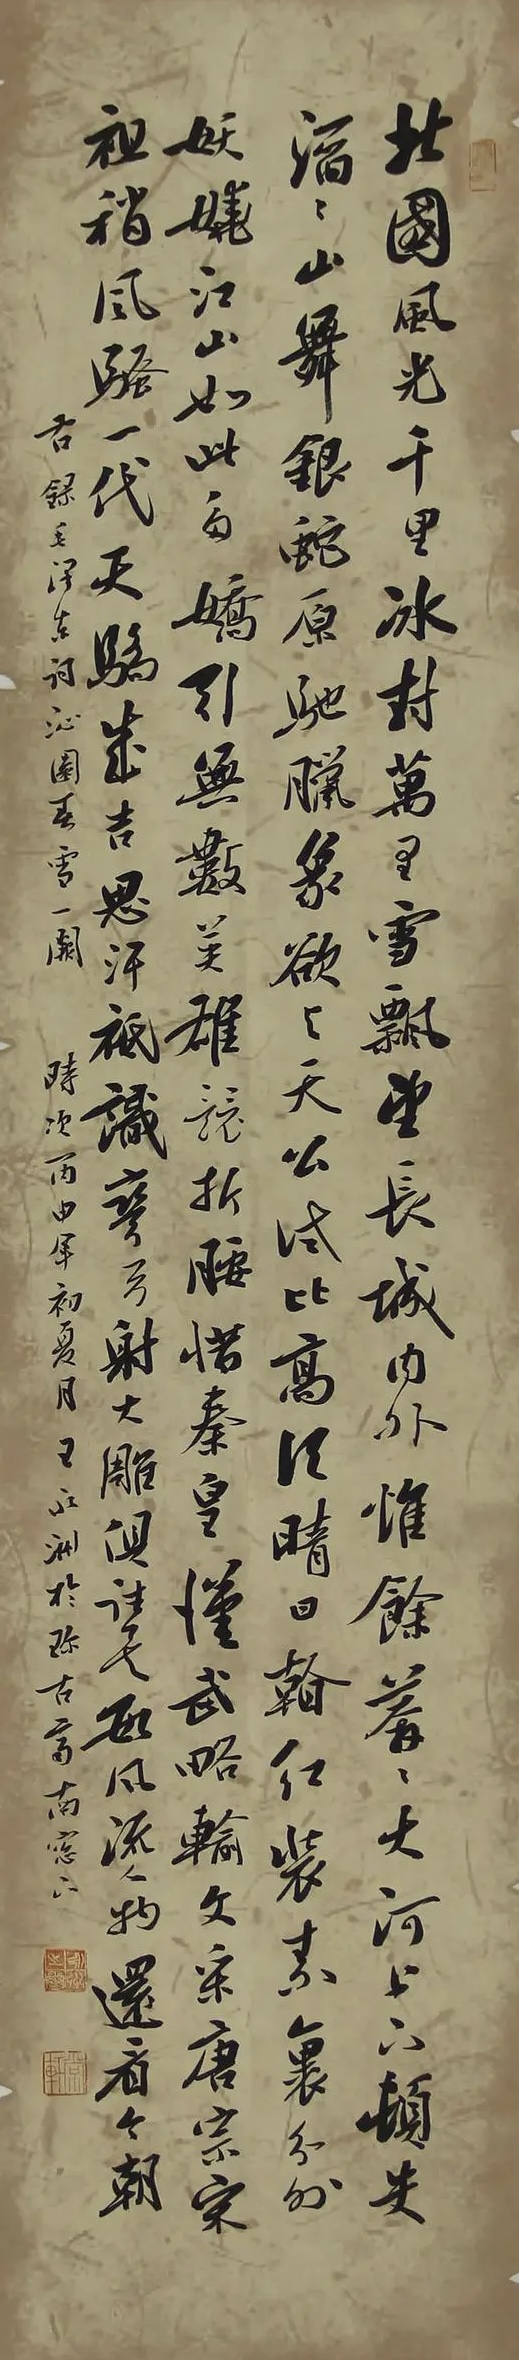 北國風光千里冰封萬里雪飄望長城內外惟餘莽〻大河上下頓失
滔〻山舞銀蛇原馳臘象欲與天公試比高須晴日看紅裝素裹分外
妖嬈江山如此多嬌引無數英雄競折腰惜秦皇漢武略輸文采唐宗宋
祖稍風騷一代天驕成吉思汗祗識彎弓射大雕俱往矣數風流人物還看今朝
右錄毛澤東詞沁園春雪一闋
時次丙申年初夏月王永洲於珍古齋南窓下